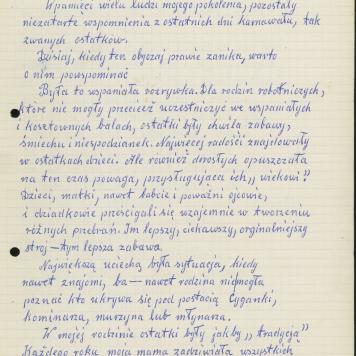 W pamięci wielu ludzi mojego pokolenia, pozostały
niezatarte wspomnienia z ostatnich dni karnawału, tak
zwanych ostatków.
Dzisiaj, kiedy ten obyczaj prawie zanika, warto
o nim powspominać
Była to wspaniała rozrywka. Dla rodzin robotniczych,
które nie mogły przecież uczestniczyć we wspaniałych
i kosztownych balach, ostatki były chwilą zabawy,
śmiechu i niespodzianek. Najwięcej radości znajdowały
w ostatkach dzieci. Ale również dorosłych opuszczała
na ten czas powaga, przysługująca ich „wiekowi"?
Dzieci, matki, nawet babcie i poważni ojcowie,
i dziadkowie prześcigali się wzajemnie w tworzeniu
różnych przebrań. Im lepszy, ciekawszy, orginalniejszy
strój – tym lepsza zabawa.
Największą uciechą była sytuacja, kiedy
nawet znajomi, ba – nawet rodzina nie mogła
poznać kto ukrywa się pod postacią Cyganki,
kominiarza, murzyna lub młynarza.
W mojej rodzinie ostatki były jakby „tradycją"
Każdego roku moja mama zadziwiała wszystkich